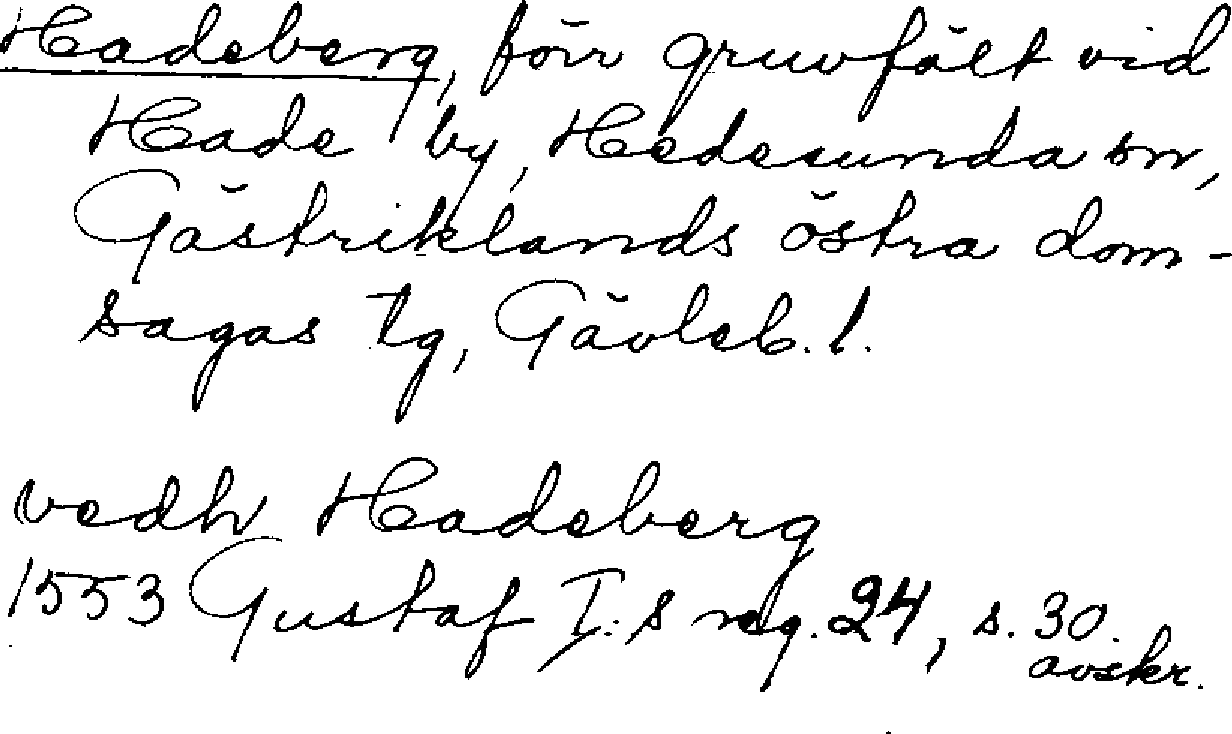 Hadeberg, förr gruvfält vid
Hade by, Hedesunda sn,
Gästriklands östra dom-
sagas tg, Gävleb. l.
vedh Hadeberg
1553 Gustaf I:s reg. 24, s. 30.
avskr.